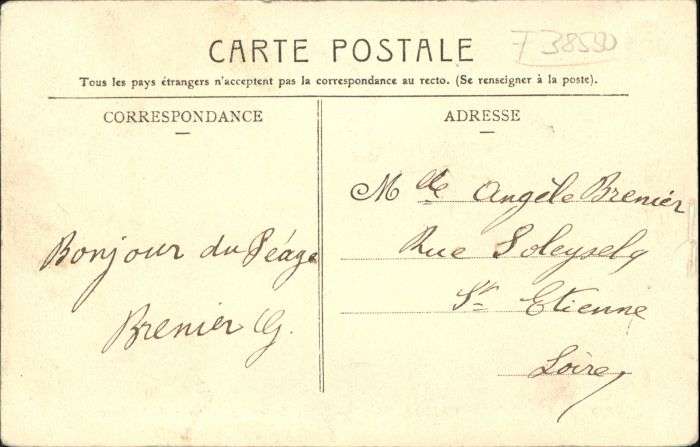 CARTE POSTALE
T 38590
Tous les pays étrangers n'acceptent pas la correspondance au recto. (Se renseigner à la poste).
CORRESPONDANCE
Bonjour du Péage
Brenier G.
ADRESSE
Mlle Angèle Brenier
Rue Soleysel
St Etienne
Loire